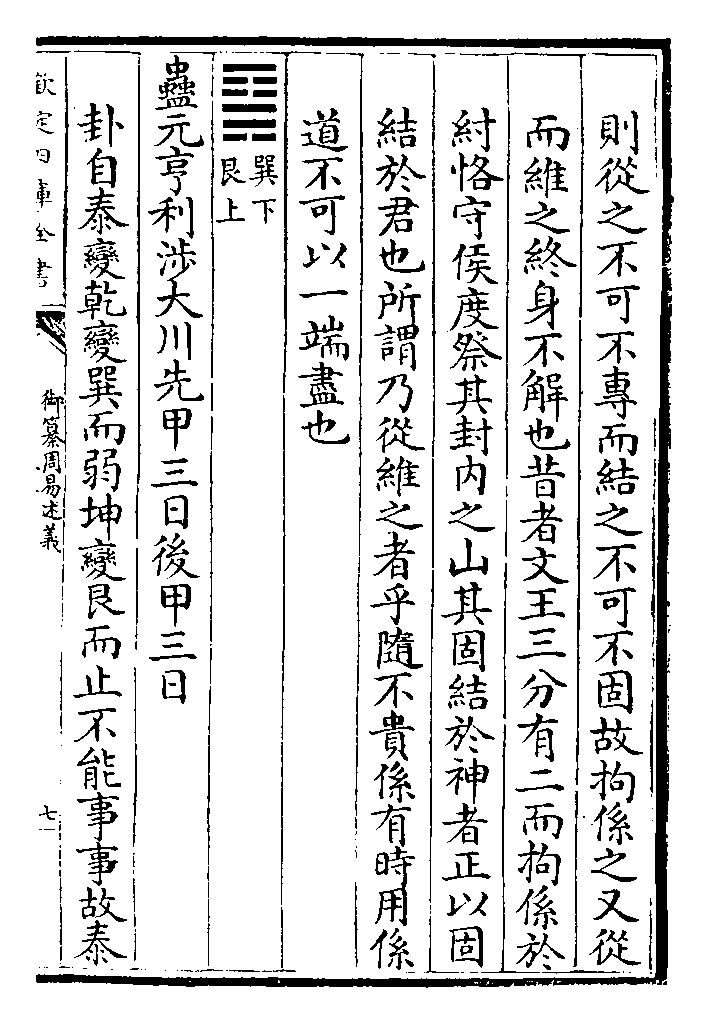 則從之不可不專而結之不可不固故拘係之又從
而維之終身不解也昔者文王三分有二而拘係於
紂恪守侯度祭其封内之山其固結於神者正以固
結於君也所謂乃從維之者乎隨不貴係有時用係
道不可以一端盡也
䷑
巽下
艮上
蠱元亨利涉大川先甲三日後甲三日
卦自泰變乾變巽而弱坤變艮而止不能事事故泰
欽定四庫全書
御纂周易述義